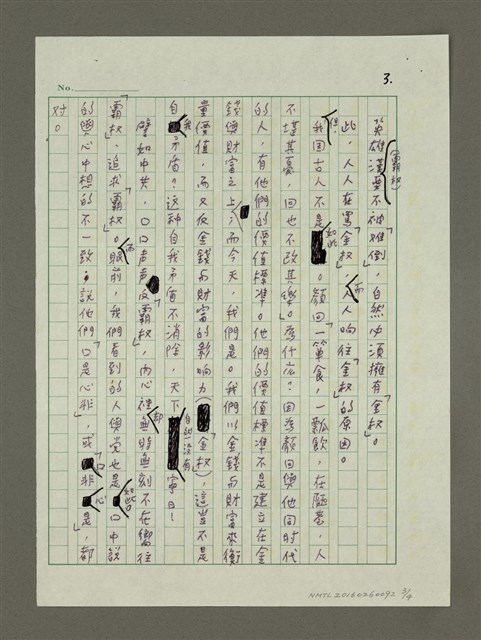 No.
3.
英雄漢要不被難倒，自然必須擁有「金权」。
(霸权)
此，人人在罵「金权」，而人人响往「金权」的原因。
但我国古人不是如此。顏回一簞食，一瓢飲，在陋巷，人
不堪其憂，回也不改其樂。」為什麼？因為顏回與他同時代
的人，有他們的價值標準。他們的價值標準不是建立在金
錢與財富之上；而今天，我們是。我們以金錢与財富來衡
量價值，而又反金錢与財富的影响力（「金权」），這豈不是
自我矛盾？这种自我矛盾不消除，天下自然沒有寧日！
譬如中共，口口声声反「霸权」，內心裡却無時無刻不在嚮往
「霸权」、追求「霸权」。而眼前，我們看到的人與党也是如此。口中說
的與心中想的不一致。說他們「口是心非」，或「口非心是」，都
对。
NMTL20160260092 3/4